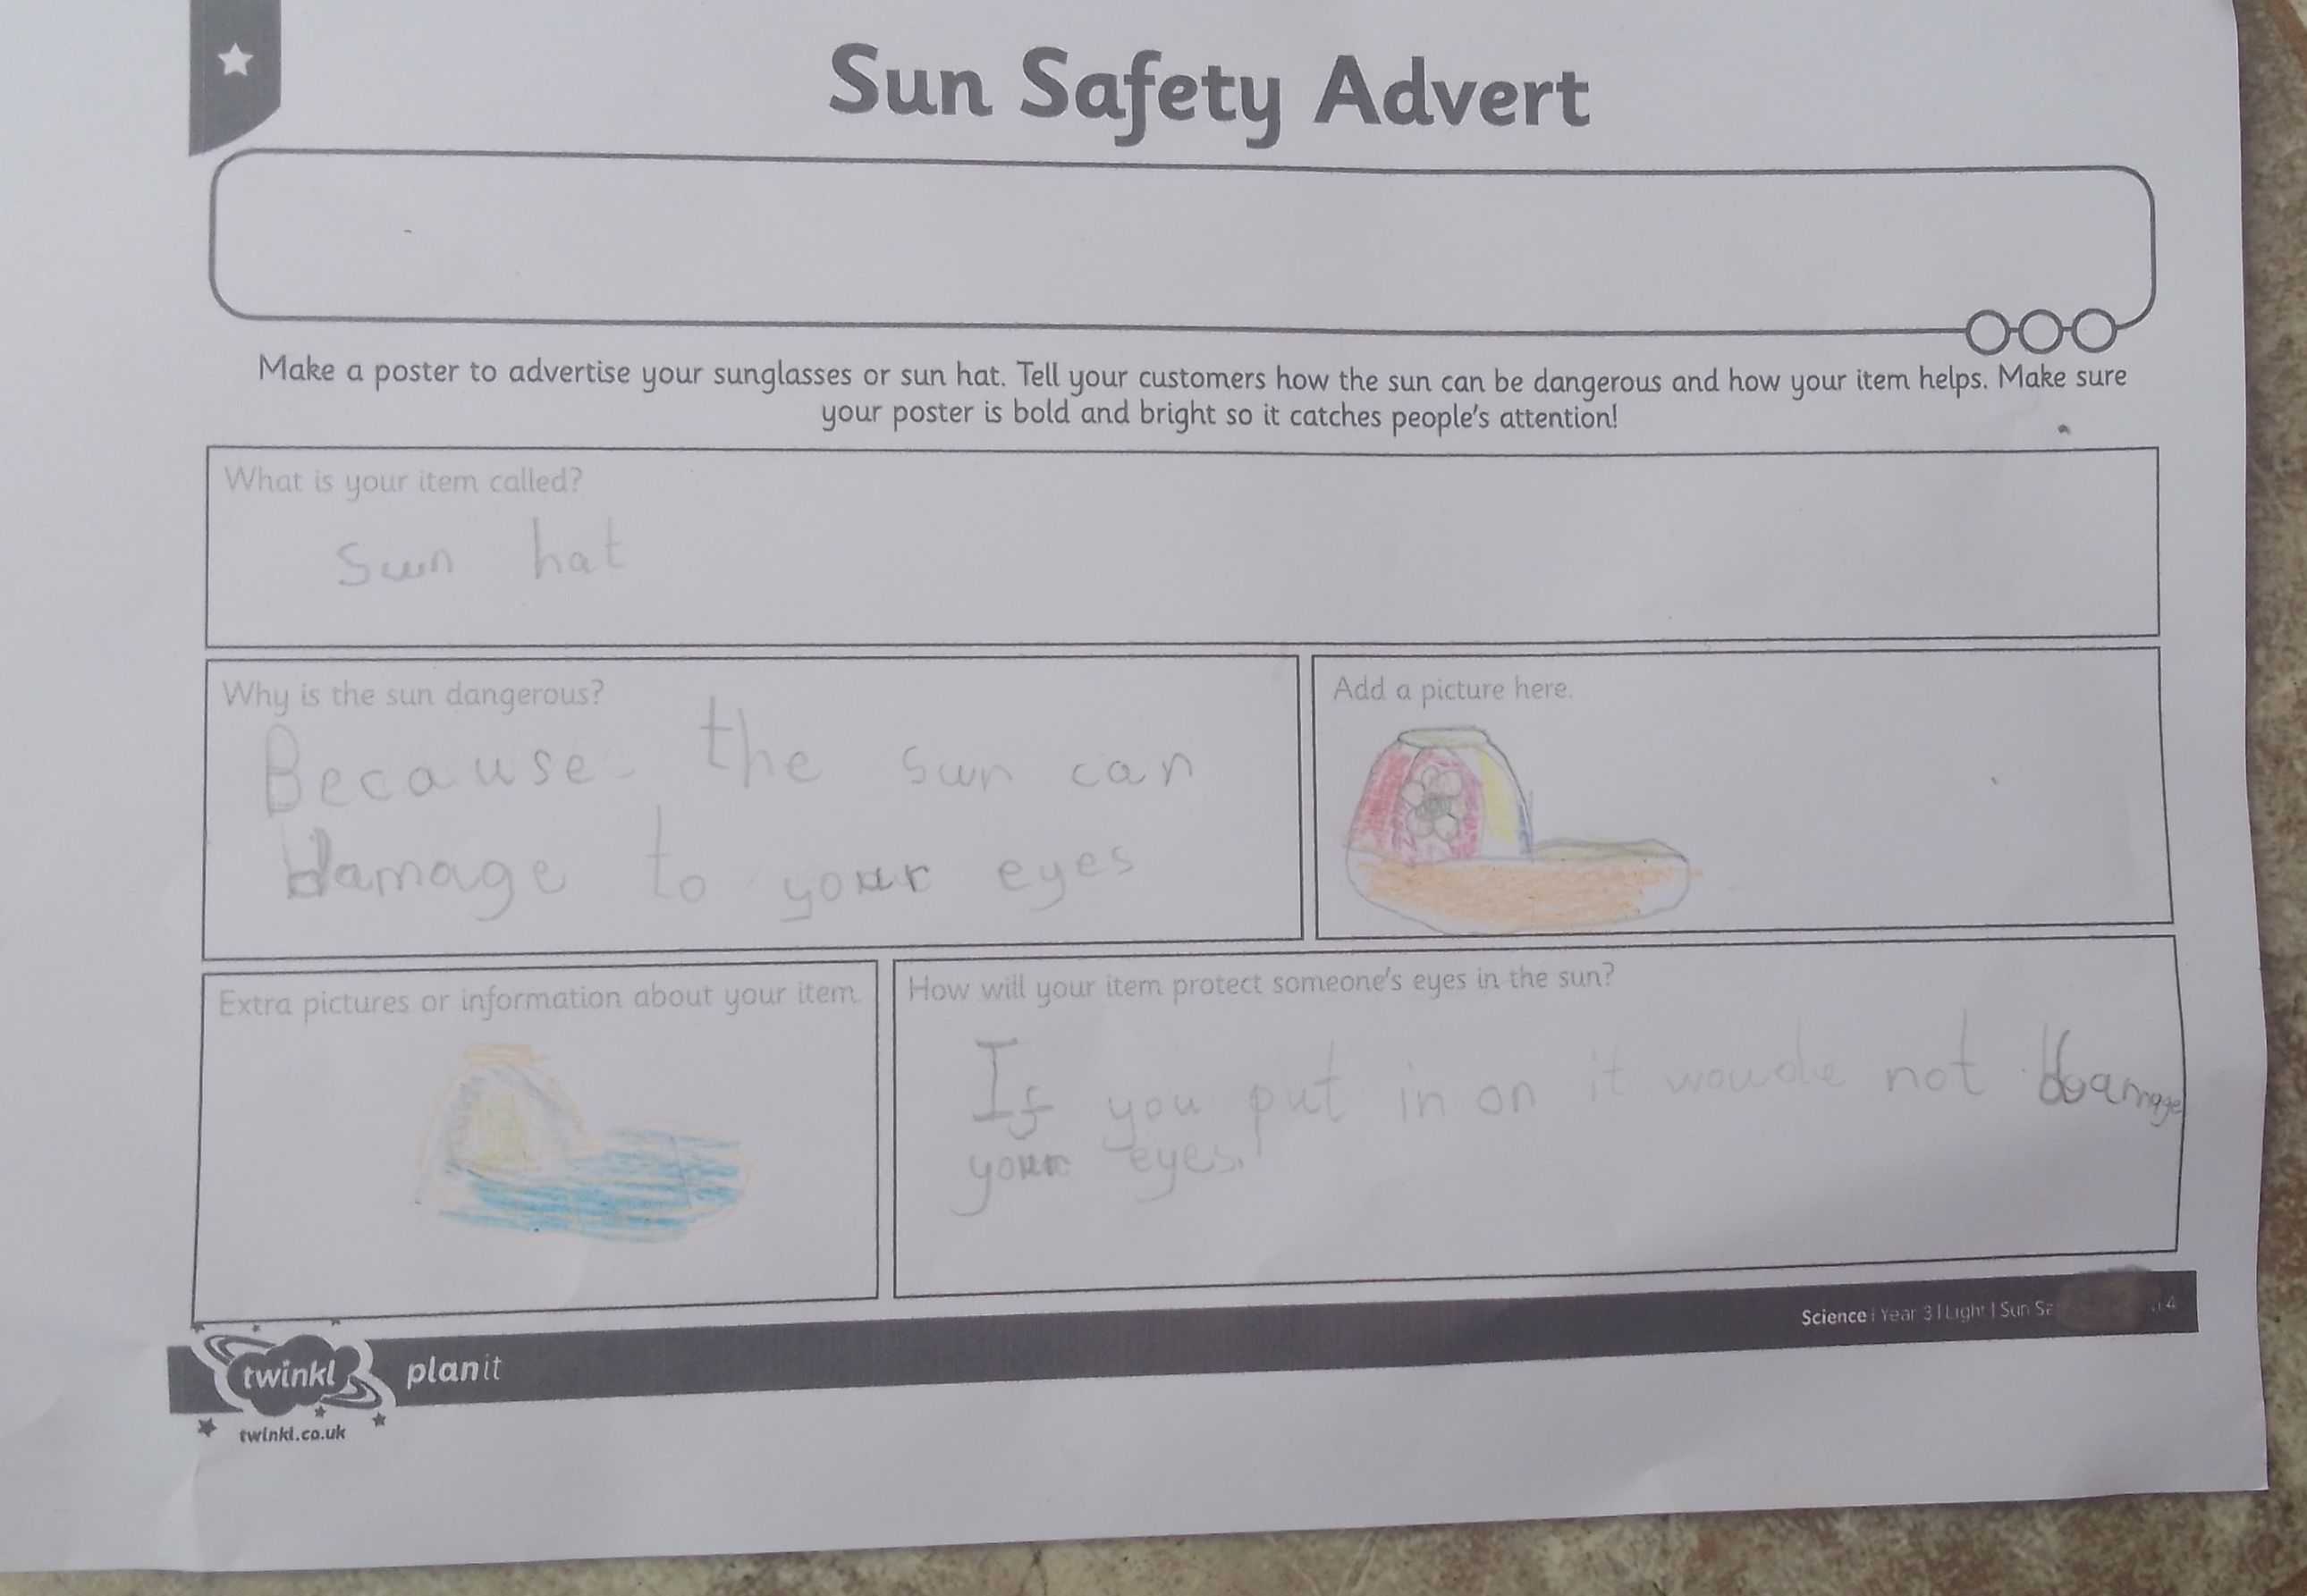 Sun Safety Advert
Make a poster to advertise your sunglasses or sun hat. Tell your customers how the sun can be dangerous and how your item helps. Make sure
your poster is bold and bright so it catches people's attention!
What is your item called?
sun hat
Why is the sun dangerous?
Because the sun can
damage to your eyes
Add a picture here.
Extra pictures or information about your item.
How will your item protect someone's eyes in the sun?
If you put in on it woude not damage
your eyes.
Science | Year 3 | Light | Sun 4
twinkl planit
twinkl.co.uk